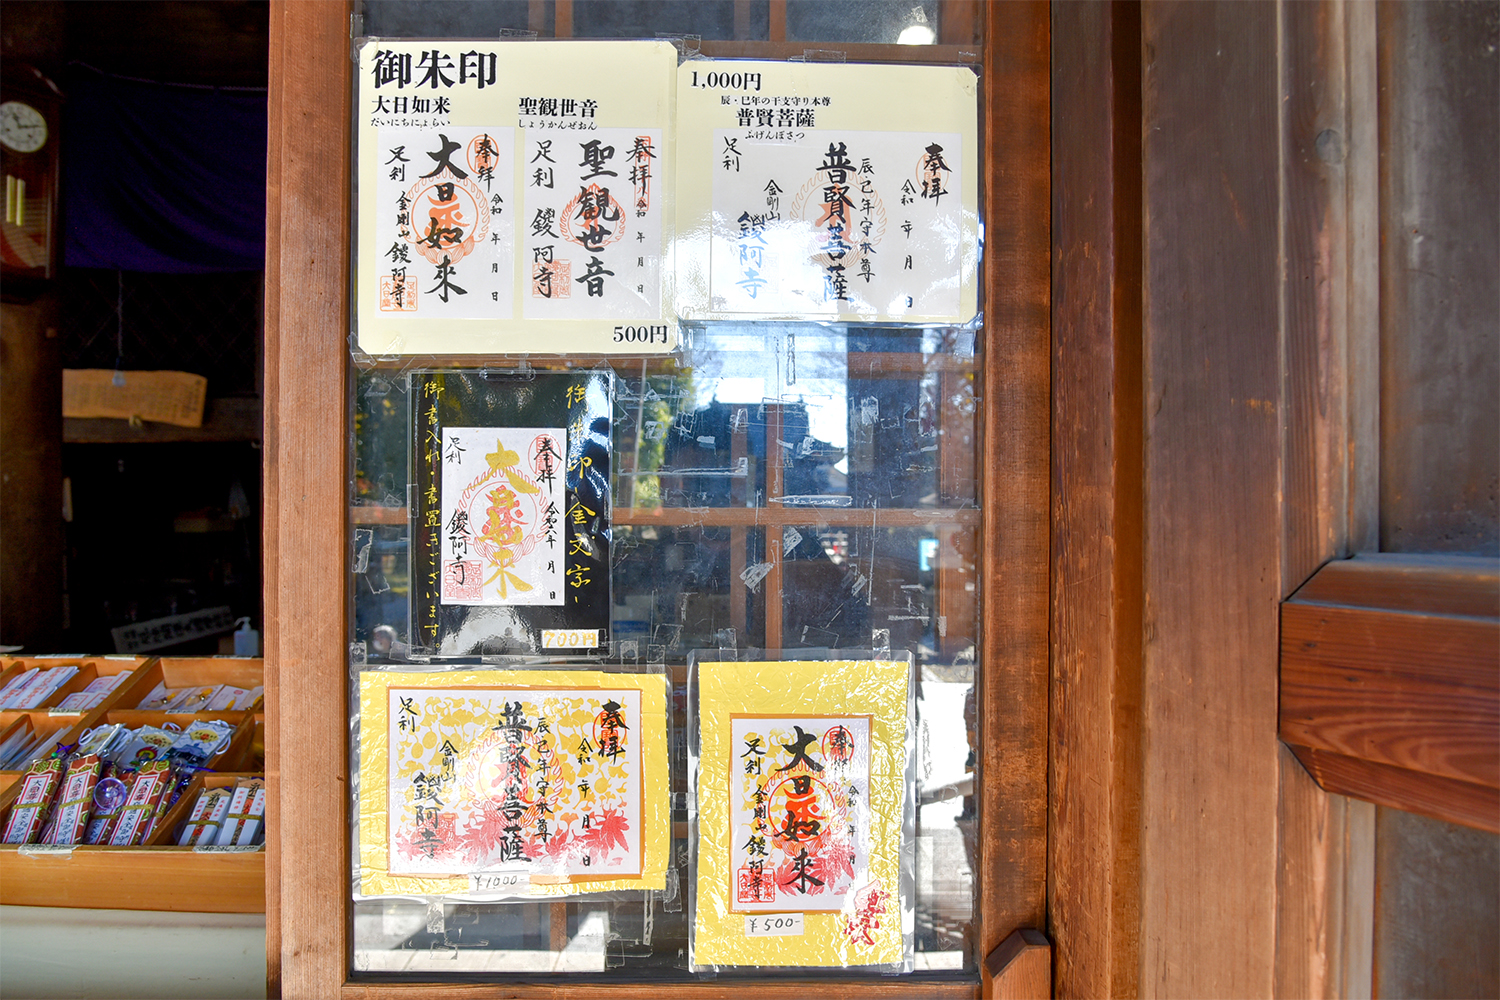 御朱印
大日如来
だいにちにょらい
聖観世音
しょうかんぜおん
奉拝
大日如來
令和 年 月 日
足利
金剛山 鑁阿寺
奉拝
聖観世音
令和 年 月 日
足利 鑁阿寺
500円
1,000円
辰・巳年の干支守り本尊
普賢菩薩
ふげんぼさつ
奉拝
令和 年 月 日
辰巳年守本尊
普賢菩薩
足利
金剛山
鑁阿寺
御朱印-金文字-
御書入れ・書置きございます。
奉拝
令和八年 月 日
大日如来
足利
鑁阿寺
700円
奉拝
令和 年 月 日
辰巳年守本尊
普賢菩薩
足利
金剛山
鑁阿寺
¥1000-
奉拝
令和 年 月
大日如來
足利
金剛山 鑁阿寺
¥500-